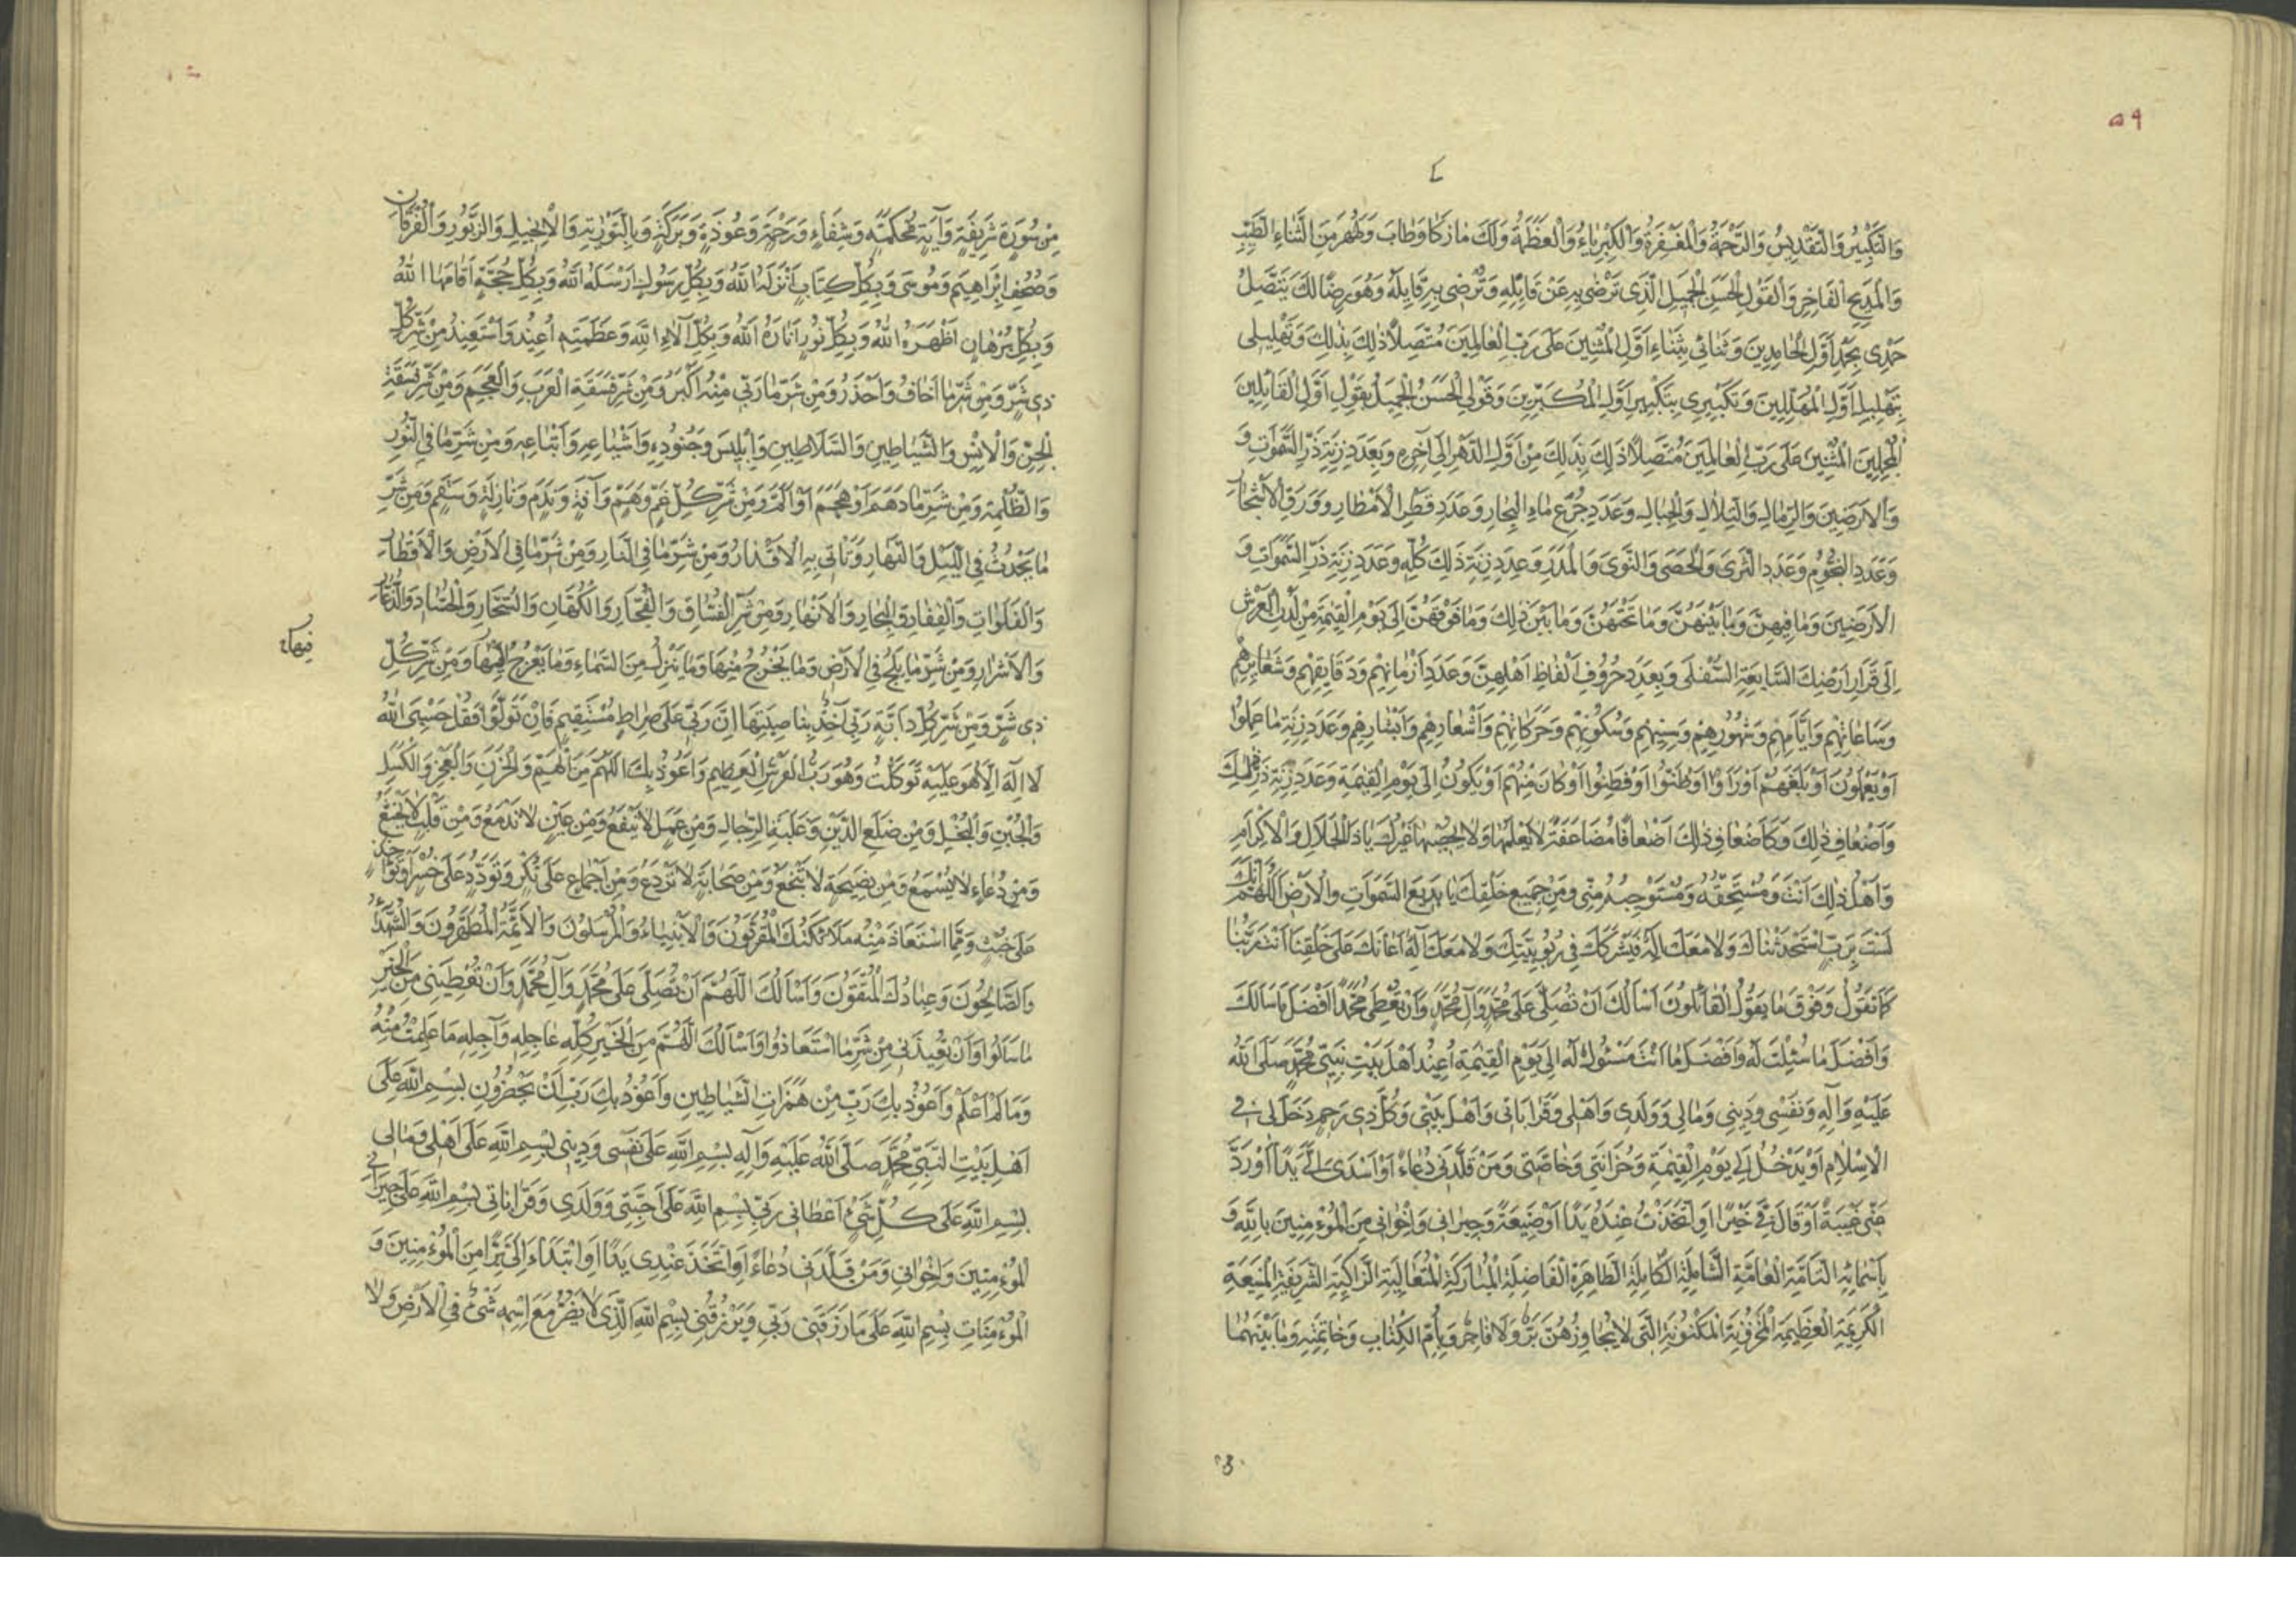 ٥٩
وَالتَّكْبِيرُ وَالتَّقْدِيسُ وَالرَّحْمَةُ وَالْمَغْفِرَةُ وَالْكِبْرِيَاءُ وَالْعَظَمَةُ وَلَكَ مَا زَكَا وَطَابَ وَطَهُرَ مِنَ الثَّنَاءِ الطَّيِّبِ
وَالْمَدِيحِ الْفَاخِرِ وَالْقَوْلِ الْحَسَنِ الْجَمِيلِ الَّذِي تَرْضَى بِهِ عَنْ قَائِلِهِ وَتُرْضِي بِهِ قَائِلَهُ وَهُوَ رِضًا لَكَ يَتَّصِلُ
حَمْدِي بِحَمْدِ أَوَّلِ الْحَامِدِينَ وَثَنَائِي بِثَنَاءِ أَوَّلِ الْمُثْنِينَ عَلَى رَبِّ الْعَالَمِينَ مُتَّصِلًا ذَلِكَ بِذَلِكَ وَتَهْلِيلِي
بِتَهْلِيلِ أَوَّلِ الْمُهَلِّلِينَ وَتَكْبِيرِي بِتَكْبِيرِ أَوَّلِ الْمُكَبِّرِينَ وَقَوْلِيَ الْحَسَنُ الْجَمِيلُ بِقَوْلِ أَوَّلِ الْقَائِلِينَ
الْمُجْمِلِينَ الْمُثْنِينَ عَلَى رَبِّ الْعَالَمِينَ مُتَّصِلًا ذَلِكَ بِذَلِكَ مِنْ أَوَّلِ الدَّهْرِ إِلَى آخِرِهِ وَبِعَدَدِ زِنَةِ ذَرِّ السَّمَوَاتِ وَ
وَالْأَرَضِينَ وَالرِّمَالِ وَالتِّلَالِ وَالْجِبَالِ وَعَدَدِ جُرَعِ مَاءِ الْبِحَارِ وَعَدَدِ قَطْرِ الْأَمْطَارِ وَوَرَقِ الْأَشْجَارِ
وَعَدَدِ النُّجُومِ وَعَدَدِ الثَّرَى وَالْحَصَى وَالنَّوَى وَالْمَدَرِ وَعَدَدِ زِنَةِ ذَلِكَ كُلِّهِ وَعَدَدِ زِنَةِ ذَرِّ السَّمَوَاتِ وَ
الْأَرَضِينَ وَمَا فِيهِنَّ وَمَا بَيْنَهُنَّ وَمَا تَحْتَهُنَّ وَمَا بَيْنَ ذَلِكَ وَمَا فَوْقَهُنَّ إِلَى يَوْمِ الْقِيَمَةِ مِنْ لَدُنِ الْعَرْشِ
إِلَى قَرَارِ أَرْضِكَ السَّابِعَةِ السُّفْلَى وَبِعَدَدِ حُرُوفِ أَلْفَاظِ أَهْلِهِنَّ وَعَدَدِ أَزْمَانِهِمْ وَدَقَائِقِهِمْ وَشَعَائِرِهِمْ
وَسَاعَاتِهِمْ وَأَيَّامِهِمْ وَشُهُورِهِمْ وَسِنِيهِمْ وَسُكُونِهِمْ وَحَرَكَاتِهِمْ وَأَشْعَارِهِمْ وَأَبْشَارِهِمْ وَعَدَدِ زِنَةِ مَا عَمِلُوا
أَوْ يَعْمَلُونَ أَوْ بَلَغَهُمْ أَوْ رَأَوْا أَوْ ظَنُّوا أَوْ فَطِنُوا أَوْ كَانَ مِنْهُمْ أَوْ يَكُونُ إِلَى يَوْمِ الْقِيَمَةِ وَعَدَدِ زِنَةِ ذَرِّ ذَلِكَ
وَأَضْعَافِ ذَلِكَ وَكَأَضْعَافِ ذَلِكَ أَضْعَافًا مُضَاعَفَةً لَا يَعْلَمُهَا وَلَا يُحْصِيهَا غَيْرُكَ يَا ذَا الْجَلَالِ وَالْإِكْرَامِ
وَأَهْلُ ذَلِكَ أَنْتَ وَمُسْتَحِقُّهُ وَمُسْتَوْجِبُهُ مِنِّي وَمِنْ جَمِيعِ خَلْقِكَ يَا بَدِيعَ السَّمَوَاتِ وَالْأَرْضِ اللَّهُمَّ إِنَّكَ
لَسْتَ بِرَبٍّ اسْتَحْدَثْنَاكَ وَلَا مَعَكَ إِلَهٌ فَيَشْرَكَكَ فِي رُبُوبِيَّتِكَ وَلَا مَعَكَ إِلَهٌ أَعَانَكَ عَلَى خَلْقِنَا أَنْتَ رَبُّنَا
كَمَا تَقُولُ وَفَوْقَ مَا يَقُولُ الْقَائِلُونَ أَسْأَلُكَ أَنْ تُصَلِّيَ عَلَى مُحَمَّدٍ وَآلِ مُحَمَّدٍ وَأَنْ تُعْطِيَ مُحَمَّدًا أَفْضَلَ مَا سَأَلَكَ
وَأَفْضَلَ مَا سُئِلْتَ لَهُ وَأَفْضَلَ مَا أَنْتَ مَسْئُولٌ لَهُ إِلَى يَوْمِ الْقِيَمَةِ أُعِيذُ أَهْلَ بَيْتِ نَبِيِّي مُحَمَّدٍ صَلَّى اللَّهُ
عَلَيْهِ وَآلِهِ وَنَفْسِي وَدِينِي وَمَالِي وَوَلَدِي وَأَهْلِي وَقَرَابَاتِي وَأَهْلَ بَيْتِي وَكُلَّ ذِي رَحِمٍ دَخَلَ لِي فِي
الْإِسْلَامِ أَوْ يَدْخُلُ إِلَى يَوْمِ الْقِيَمَةِ وَحُزَانَتِي وَخَاصَّتِي وَمَنْ قَلَّدَنِي دُعَاءً أَوْ أَسْدَى إِلَيَّ يَدًا أَوْ رَدَّ
عَنِّي غَيْبَةً أَوْ قَالَ فِيَّ خَيْرًا أَوِ اتَّخَذْتُ عِنْدَهُ يَدًا أَوْ صَنِيعَةً وَجِيرَانِي وَإِخْوَانِي مِنَ الْمُؤْمِنِينَ بِاللَّهِ وَ
بِأَسْمَائِهِ التَّامَّةِ الْعَامَّةِ الشَّامِلَةِ الْكَامِلَةِ الطَّاهِرَةِ الْفَاضِلَةِ الْمُبَارَكَةِ الْمُتَعَالِيَةِ الزَّاكِيَةِ الشَّرِيفَةِ الْمَنِيعَةِ
الْكَرِيمَةِ الْعَظِيمَةِ الْمَخْزُونَةِ الْمَكْنُونَةِ الَّتِي لَا يُجَاوِزُهُنَّ بَرٌّ وَلَا فَاجِرٌ وَبِأُمِّ الْكِتَابِ وَخَاتِمَتِهِ وَمَا بَيْنَهُمَا
مِنْ سُورَةٍ شَرِيفَةٍ وَآيَةٍ مُحْكَمَةٍ وَشِفَاءٍ وَرَحْمَةٍ وَعُوذَةٍ وَبَرَكَةٍ وَبِالتَّوْرَيةِ وَالْإِنْجِيلِ وَالزَّبُورِ وَالْفُرْقَانِ
وَصُحُفِ إِبْرَاهِيمَ وَمُوسَى وَبِكُلِّ كِتَابٍ أَنْزَلَهُ اللَّهُ وَبِكُلِّ رَسُولٍ أَرْسَلَهُ اللَّهُ وَبِكُلِّ حُجَّةٍ أَقَامَهَا اللَّهُ
وَبِكُلِّ بُرْهَانٍ أَظْهَرَهُ اللَّهُ وَبِكُلِّ نُورٍ أَنَارَهُ اللَّهُ وَبِكُلِّ آلَاءِ اللَّهِ وَعَظَمَتِهِ أُعِيذُ وَأَسْتَعِيذُ مِنْ شَرِّ كُلِّ
ذِي شَرٍّ وَمِنْ شَرِّ مَا أَخَافُ وَأَحْذَرُ وَمِنْ شَرِّ مَا رَبِّي مِنْهُ أَكْبَرُ وَمِنْ شَرِّ فَسَقَةِ الْعَرَبِ وَالْعَجَمِ وَمِنْ شَرِّ فَسَقَةِ
الْجِنِّ وَالْإِنْسِ وَالشَّيَاطِينِ وَالسَّلَاطِينِ وَإِبْلِيسَ وَجُنُودِهِ وَأَشْيَاعِهِ وَأَتْبَاعِهِ وَمِنْ شَرِّ مَا فِي النُّورِ
وَالظُّلْمَةِ وَمِنْ شَرِّ مَا دَهَمَ أَوْ هَجَمَ أَوْ أَلَمَّ وَمِنْ شَرِّ كُلِّ غَمٍّ وَهَمٍّ وَآفَةٍ وَنَدَمٍ وَنَازِلَةٍ وَسَقَمٍ وَمِنْ شَرِّ
مَا يَحْدُثُ فِي اللَّيْلِ وَالنَّهَارِ وَتَأْتِي بِهِ الْأَقْدَارُ وَمِنْ شَرِّ مَا فِي النَّارِ وَمِنْ شَرِّ مَا فِي الْأَرْضِ وَالْأَقْطَارِ
وَالْفَلَوَاتِ وَالْقِفَارِ وَالْبِحَارِ وَالْأَنْهَارِ وَمِنْ شَرِّ الْفُسَّاقِ وَالْفُجَّارِ وَالْكُهَّانِ وَالسُّحَّارِ وَالْحُسَّادِ وَالذُّعَّارِ
وَالْأَشْرَارِ وَمِنْ شَرِّ مَا يَلِجُ فِي الْأَرْضِ وَمَا يَخْرُجُ مِنْهَا وَمَا يَنْزِلُ مِنَ السَّمَاءِ وَمَا يَعْرُجُ إِلَيْهَا وَمِنْ شَرِّ كُلِّ
فِيهَا
ذِي شَرٍّ وَمِنْ شَرِّ كُلِّ دَابَّةٍ رَبِّي آخِذٌ بِنَاصِيَتِهَا إِنَّ رَبِّي عَلَى صِرَاطٍ مُسْتَقِيمٍ فَإِنْ تَوَلَّوْا فَقُلْ حَسْبِيَ اللَّهُ
لَا إِلَهَ إِلَّا هُوَ عَلَيْهِ تَوَكَّلْتُ وَهُوَ رَبُّ الْعَرْشِ الْعَظِيمِ وَأَعُوذُ بِكَ اللَّهُمَّ مِنَ الْهَمِّ وَالْحَزَنِ وَالْعَجْزِ وَالْكَسَلِ
وَالْجُبْنِ وَالْبُخْلِ وَمِنْ ضَلَعِ الدَّيْنِ وَغَلَبَةِ الرِّجَالِ وَمِنْ عَمَلٍ لَا يَنْفَعُ وَمِنْ عَيْنٍ لَا تَدْمَعُ وَمِنْ قَلْبٍ لَا يَخْشَعُ
وَمِنْ دُعَاءٍ لَا يُسْمَعُ وَمِنْ نَصِيحَةٍ لَا تَنْجَعُ وَمِنْ صَحَابَةٍ لَا تَرْدَعُ وَمِنْ إِجْمَاعٍ عَلَى نُكْرٍ وَتَوَدُّدٍ عَلَى خُسْرٍ أَوْ تَوَاخُذٍ
عَلَى خُبْثٍ وَمِمَّا اسْتَعَاذَ مِنْهُ مَلَائِكَتُكَ الْمُقَرَّبُونَ وَالْأَنْبِيَاءُ وَالْمُرْسَلُونَ وَالْأَئِمَّةُ الْمُطَهَّرُونَ وَالشُّهَدَاءُ
وَالصَّالِحُونَ وَعِبَادُكَ الْمُتَّقُونَ وَأَسْأَلُكَ اللَّهُمَّ أَنْ تُصَلِّيَ عَلَى مُحَمَّدٍ وَآلِ مُحَمَّدٍ وَأَنْ تُعْطِيَنِي مِنَ الْخَيْرِ
مَا سَأَلُوا وَأَنْ تُعِيذَنِي مِنْ شَرِّ مَا اسْتَعَاذُوا وَأَسْأَلُكَ اللَّهُمَّ مِنَ الْخَيْرِ كُلِّهِ عَاجِلِهِ وَآجِلِهِ مَا عَلِمْتُ مِنْهُ
وَمَا لَمْ أَعْلَمْ وَأَعُوذُ بِكَ رَبِّ مِنْ هَمَزَاتِ الشَّيَاطِينِ وَأَعُوذُ بِكَ رَبِّ أَنْ يَحْضُرُونِ بِسْمِ اللَّهِ عَلَى
أَهْلِ بَيْتِ النَّبِيِّ مُحَمَّدٍ صَلَّى اللَّهُ عَلَيْهِ وَآلِهِ بِسْمِ اللَّهِ عَلَى نَفْسِي وَدِينِي بِسْمِ اللَّهِ عَلَى أَهْلِي وَمَالِي
بِسْمِ اللَّهِ عَلَى كُلِّ شَيْءٍ أَعْطَانِي رَبِّي بِسْمِ اللَّهِ عَلَى أَحِبَّتِي وَوَلَدِي وَقَرَابَاتِي بِسْمِ اللَّهِ عَلَى جِيرَانِي
الْمُؤْمِنِينَ وَإِخْوَانِي وَمَنْ قَلَّدَنِي دُعَاءً أَوِ اتَّخَذَ عِنْدِي يَدًا أَوِ ابْتَدَاءَ إِلَيَّ بِرًّا مِنَ الْمُؤْمِنِينَ وَ
الْمُؤْمِنَاتِ بِسْمِ اللَّهِ عَلَى مَا رَزَقَنِي رَبِّي وَيَرْزُقُنِي بِسْمِ اللَّهِ الَّذِي لَا يَضُرُّ مَعَ اسْمِهِ شَيْءٌ فِي الْأَرْضِ وَلَا